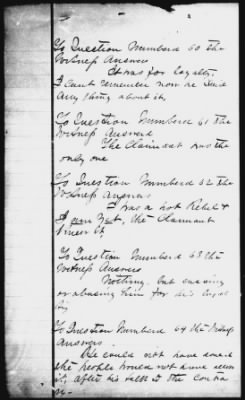 To Question Numberd 60 the
Witness Answers
It was for loyalty.
I cant remember now he said
any thing about it,
To Question Numberd 61 the
Witness Answers
The Claimant was the
only one
To Question Numberd 62 the
Witness Answers
I was a hot Rebel &
I am yet, the Claimant
never
To Question Numberd 63 the
Witness Answers
Nothing but cursing
or abusing him for his loyal
ty
To Question Numberd 64 the Witness
Answers
He could not have
the people would not have
it, after his talk to the contra